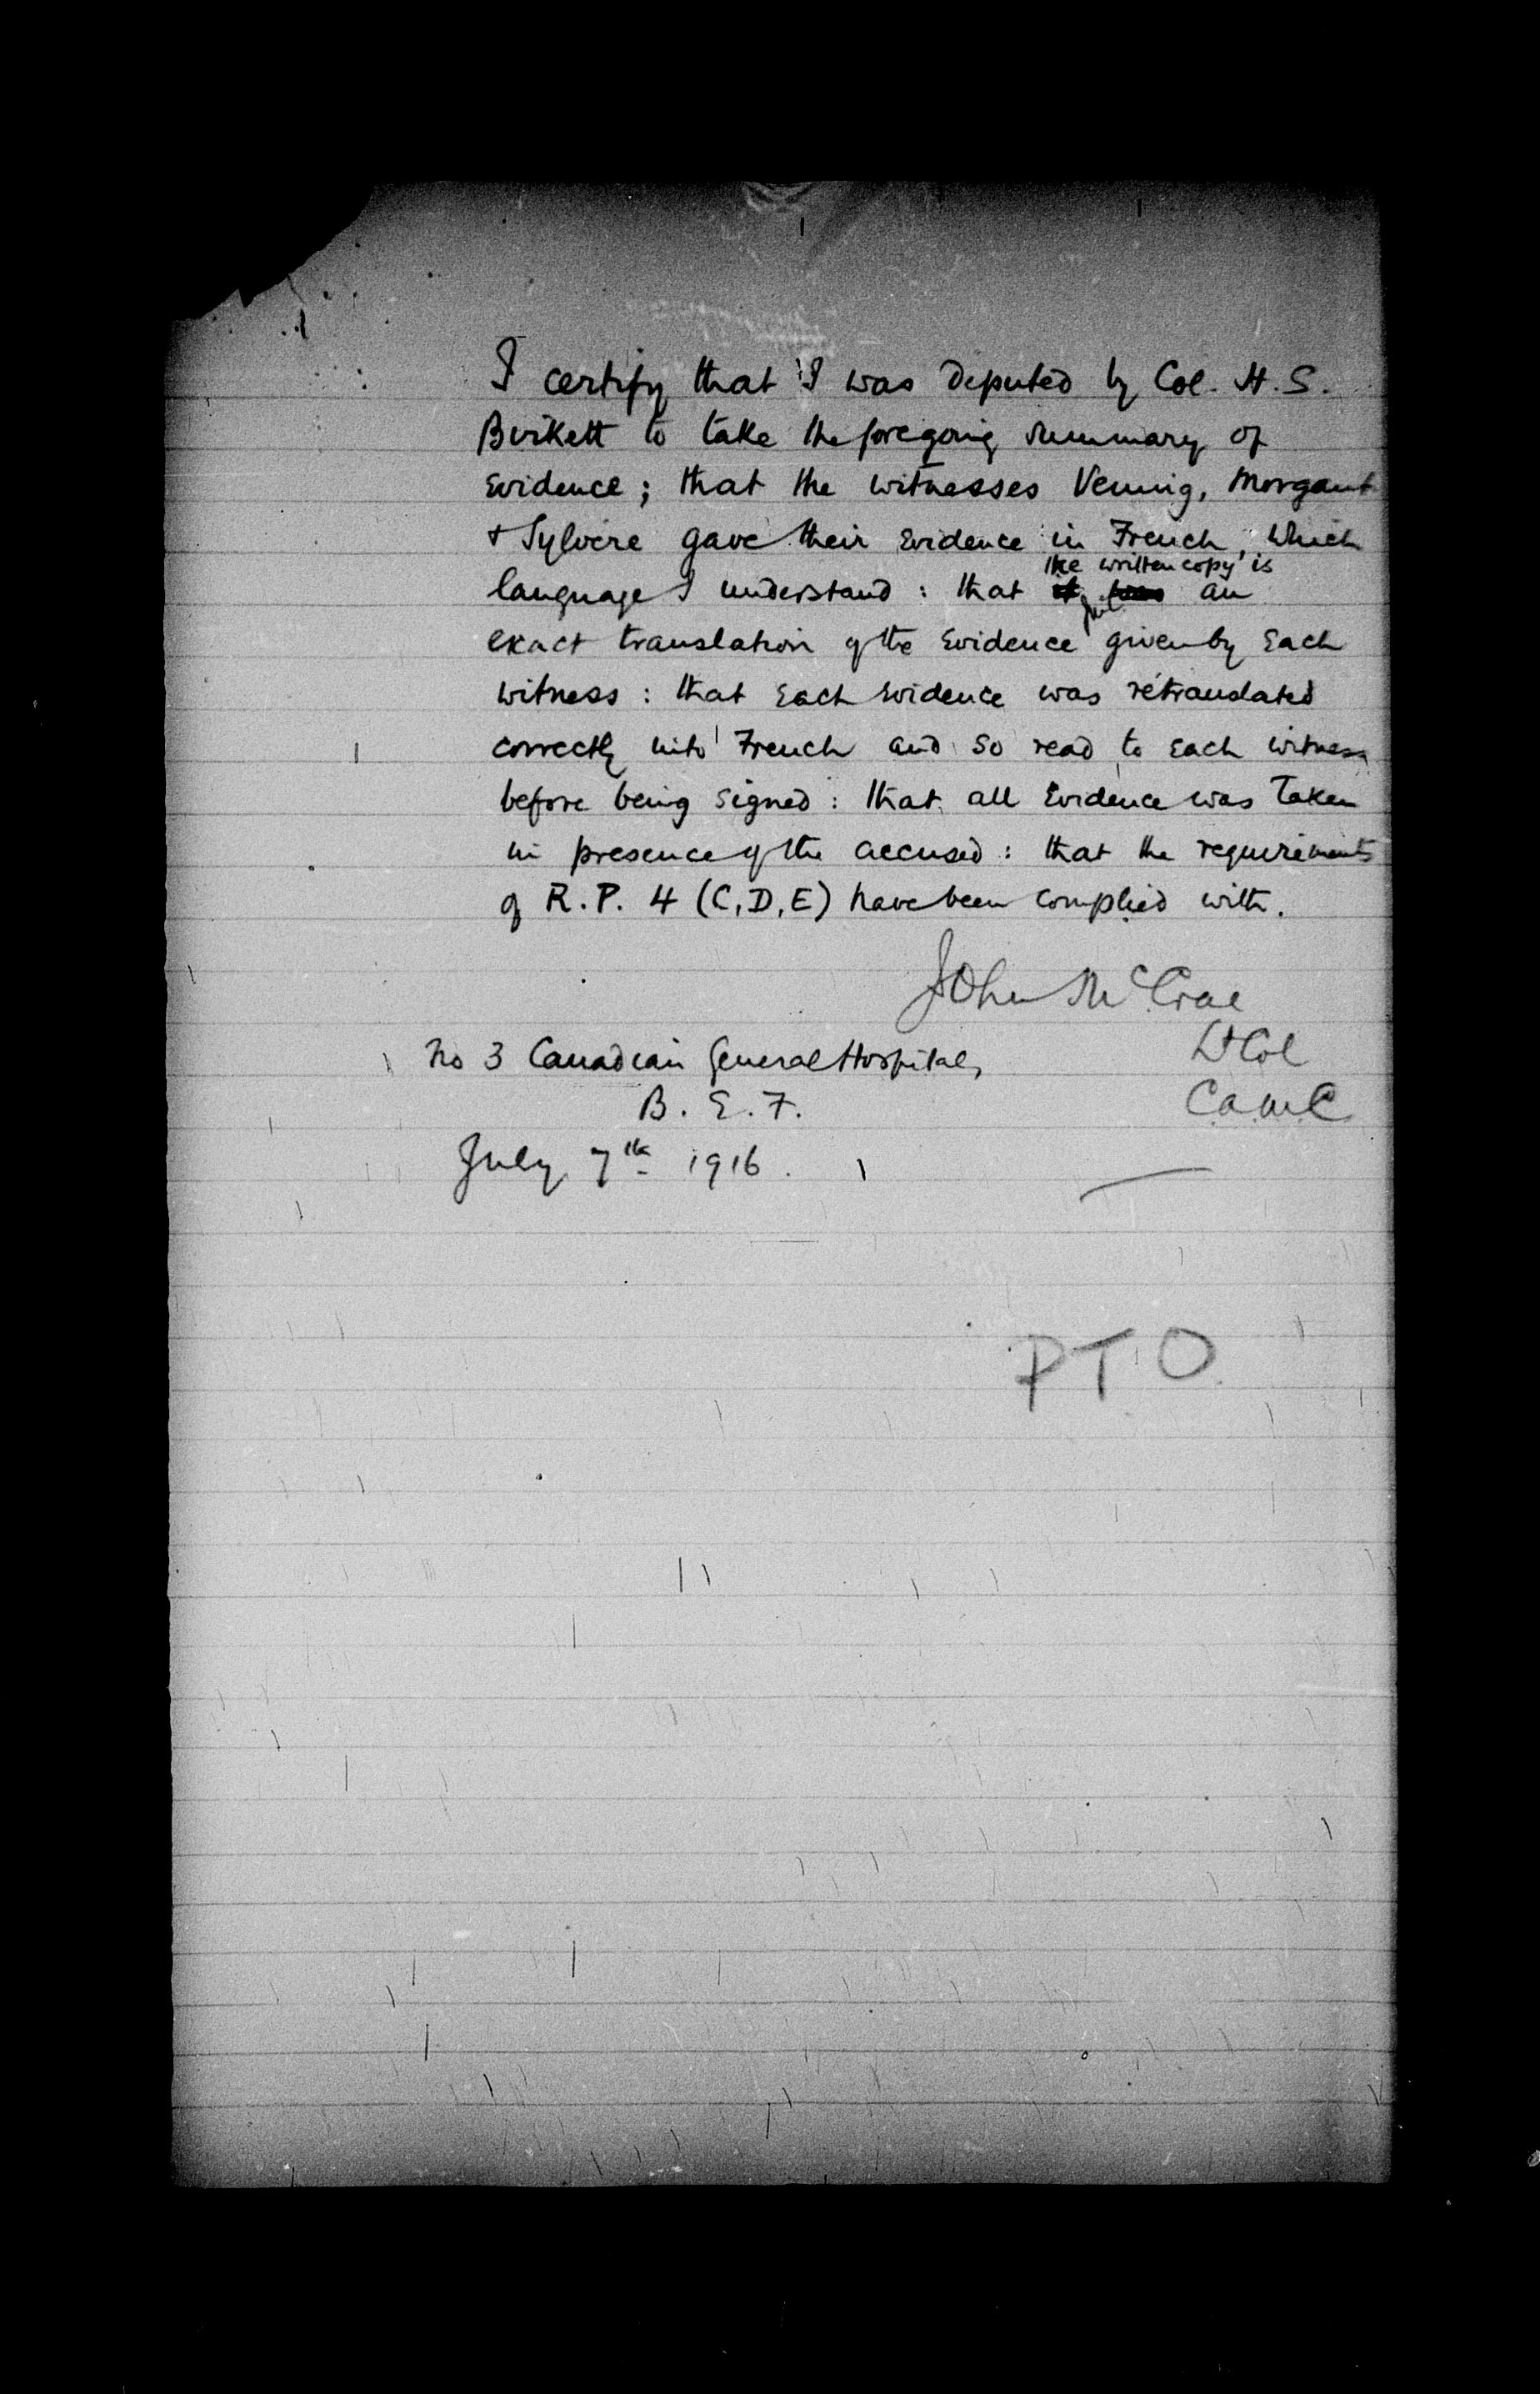 I certify that I was deputed by Col. H. S.
Birkett to take the foregoing summary of
Evidence; that the witnesses Vennig, Morgaut
& Sylvere gave their Evidence in French, which
the written copy is
language I understand : that it was an
exact translation of the Evidence given by Each
witness : that Each Evidence was retranslated
correctly into French and so read to Each witness
before being signed : that all Evidence was Taken
in presence of the accused : that the requirements
of R.P. 4 (C, D, E) have been complied with.
John McCrae
Lt Col
C.A.M.C
No 3 Canadian General Hospital,
B. E. F.
July 7th 1916.
PTO